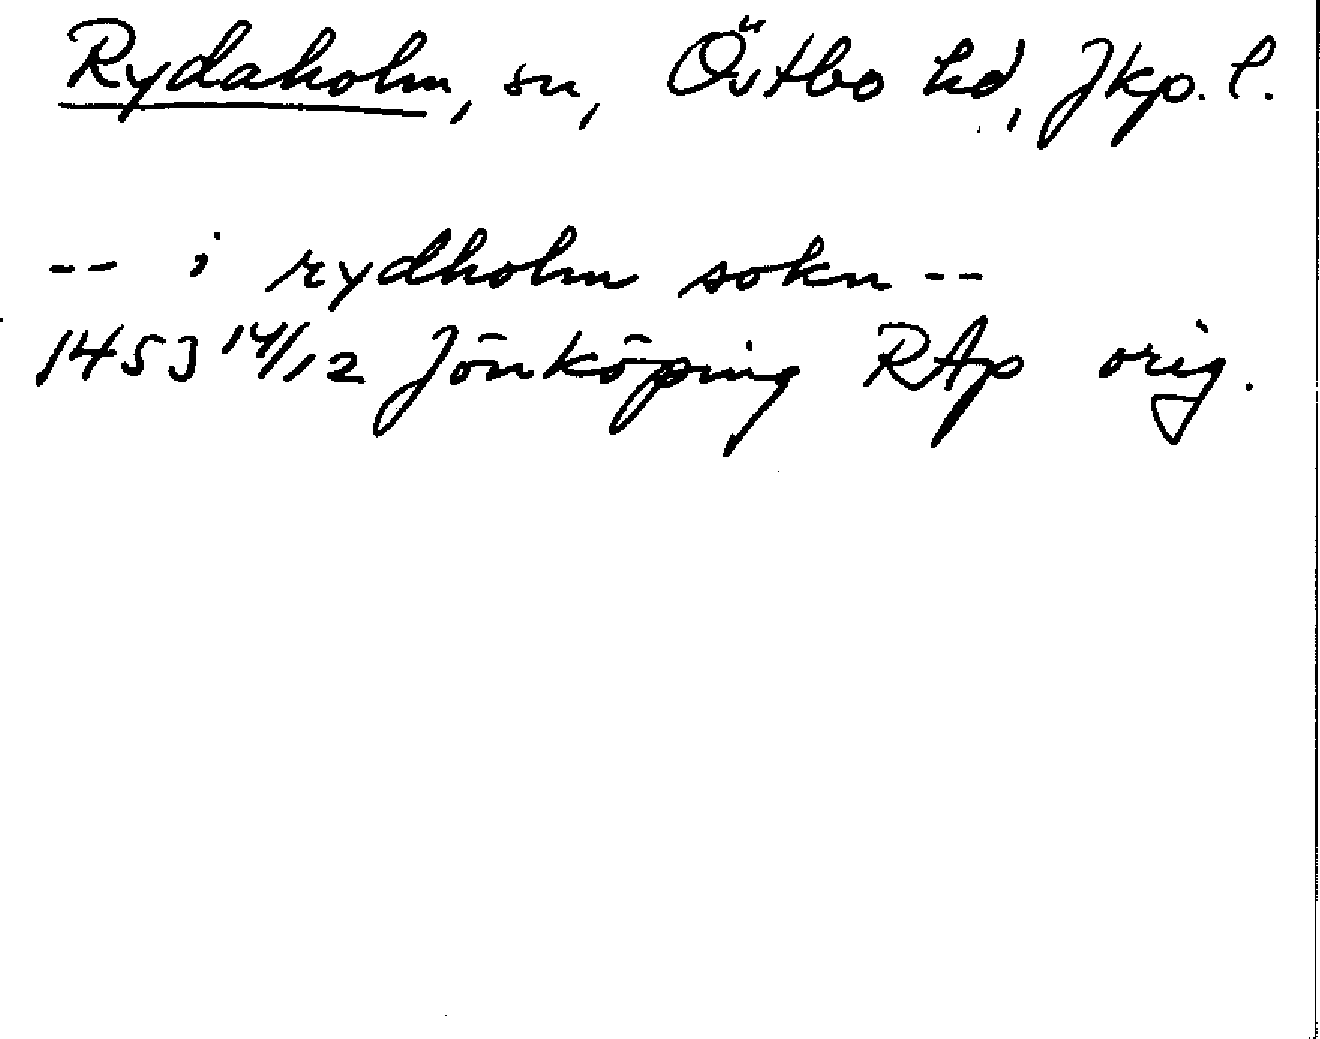 Rydaholm, sn, Östbo hd, Jkp. l.
-- i rydholm sokn --
1453 14/12 Jönköping RAp orig.